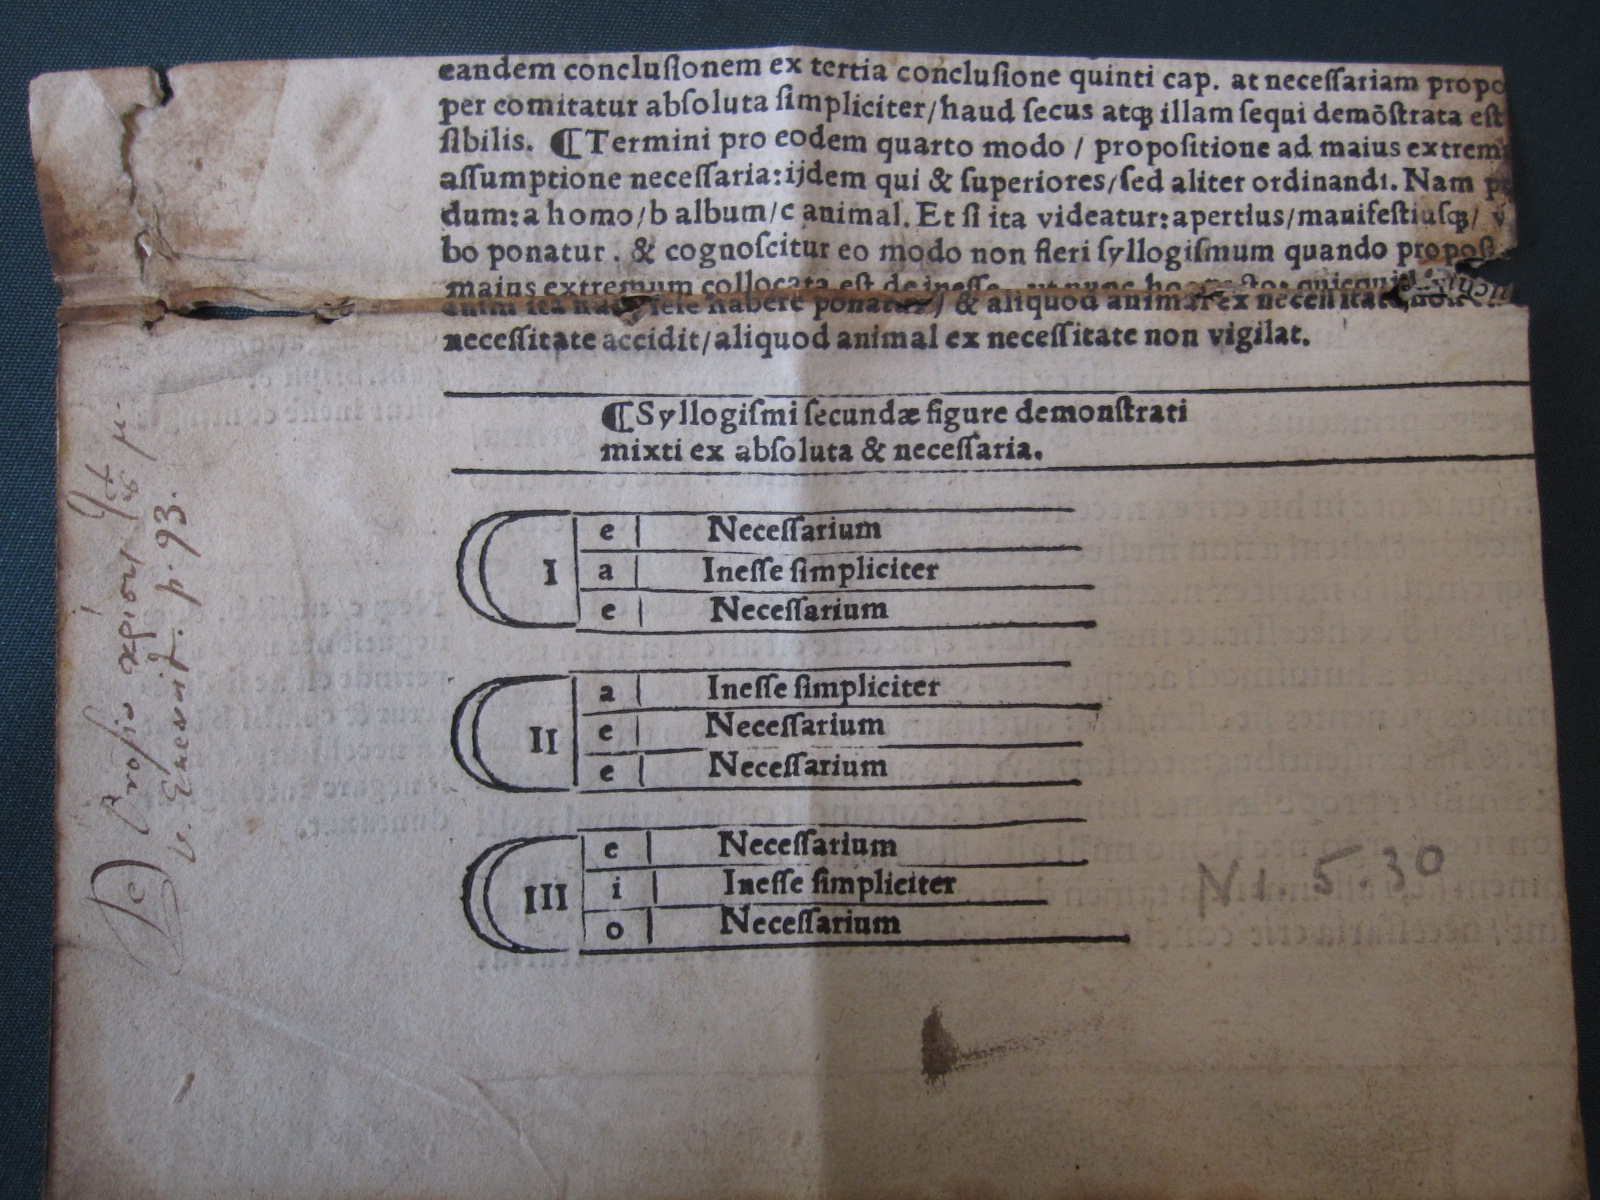 eandem concluſionem ex tertia concluſione quinti cap. at neceſſariam propo
per comitatur abſoluta ſimpliciter/haud ſecus atqꝫ illam ſequi demōſtrata eſt
ſibilis. ¶Termini pro eodem quarto modo / propoſitione ad maius extrem
aſſumptione neceſſaria:ijdem qui & ſuperiores/ſed aliter ordinandi. Nam
dum:a homo/b album/c animal. Et ſi ita videatur:apertius/manifeſtiuſqꝫ/
bo ponatur. & cognoſcitur eo modo non fieri ſyllogiſmum quando propoſ
maius extremum collocata eſt de ineſſe
habere ponatur/ & aliquod animal ex neceſſitate non
neceſſitate accidit/aliquod animal ex neceſſitate non vigilat.
¶Syllogiſmi ſecundæ figure demonſtrati
mixti ex abſoluta & neceſſaria.
I
e Neceſſarium
a Ineſſe ſimpliciter
e Neceſſarium
II
a Ineſſe ſimpliciter
e Neceſſarium
e Neceſſarium
III
e Neceſſarium
i Ineſſe ſimpliciter
o Neceſſarium
p. 93.
N 1. 5. 30